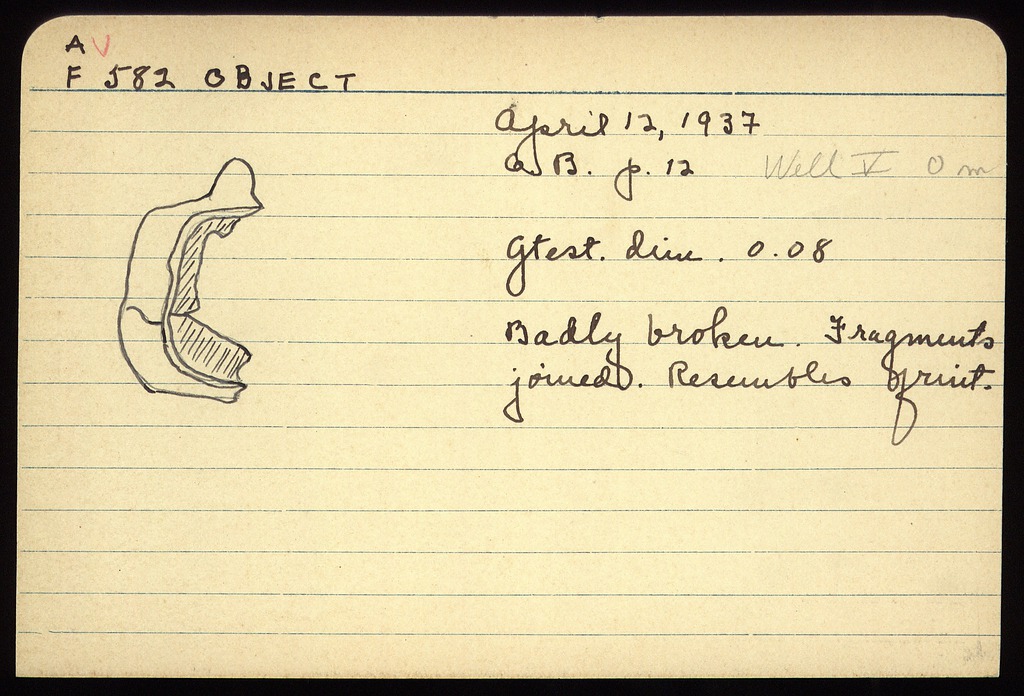 A V
F 582 OBJECT
April 12, 1937
a B. p. 12 Well V 0 m
Gtest. dim. 0.08
Badly broken. Fragments
joined. Resembles fruit.